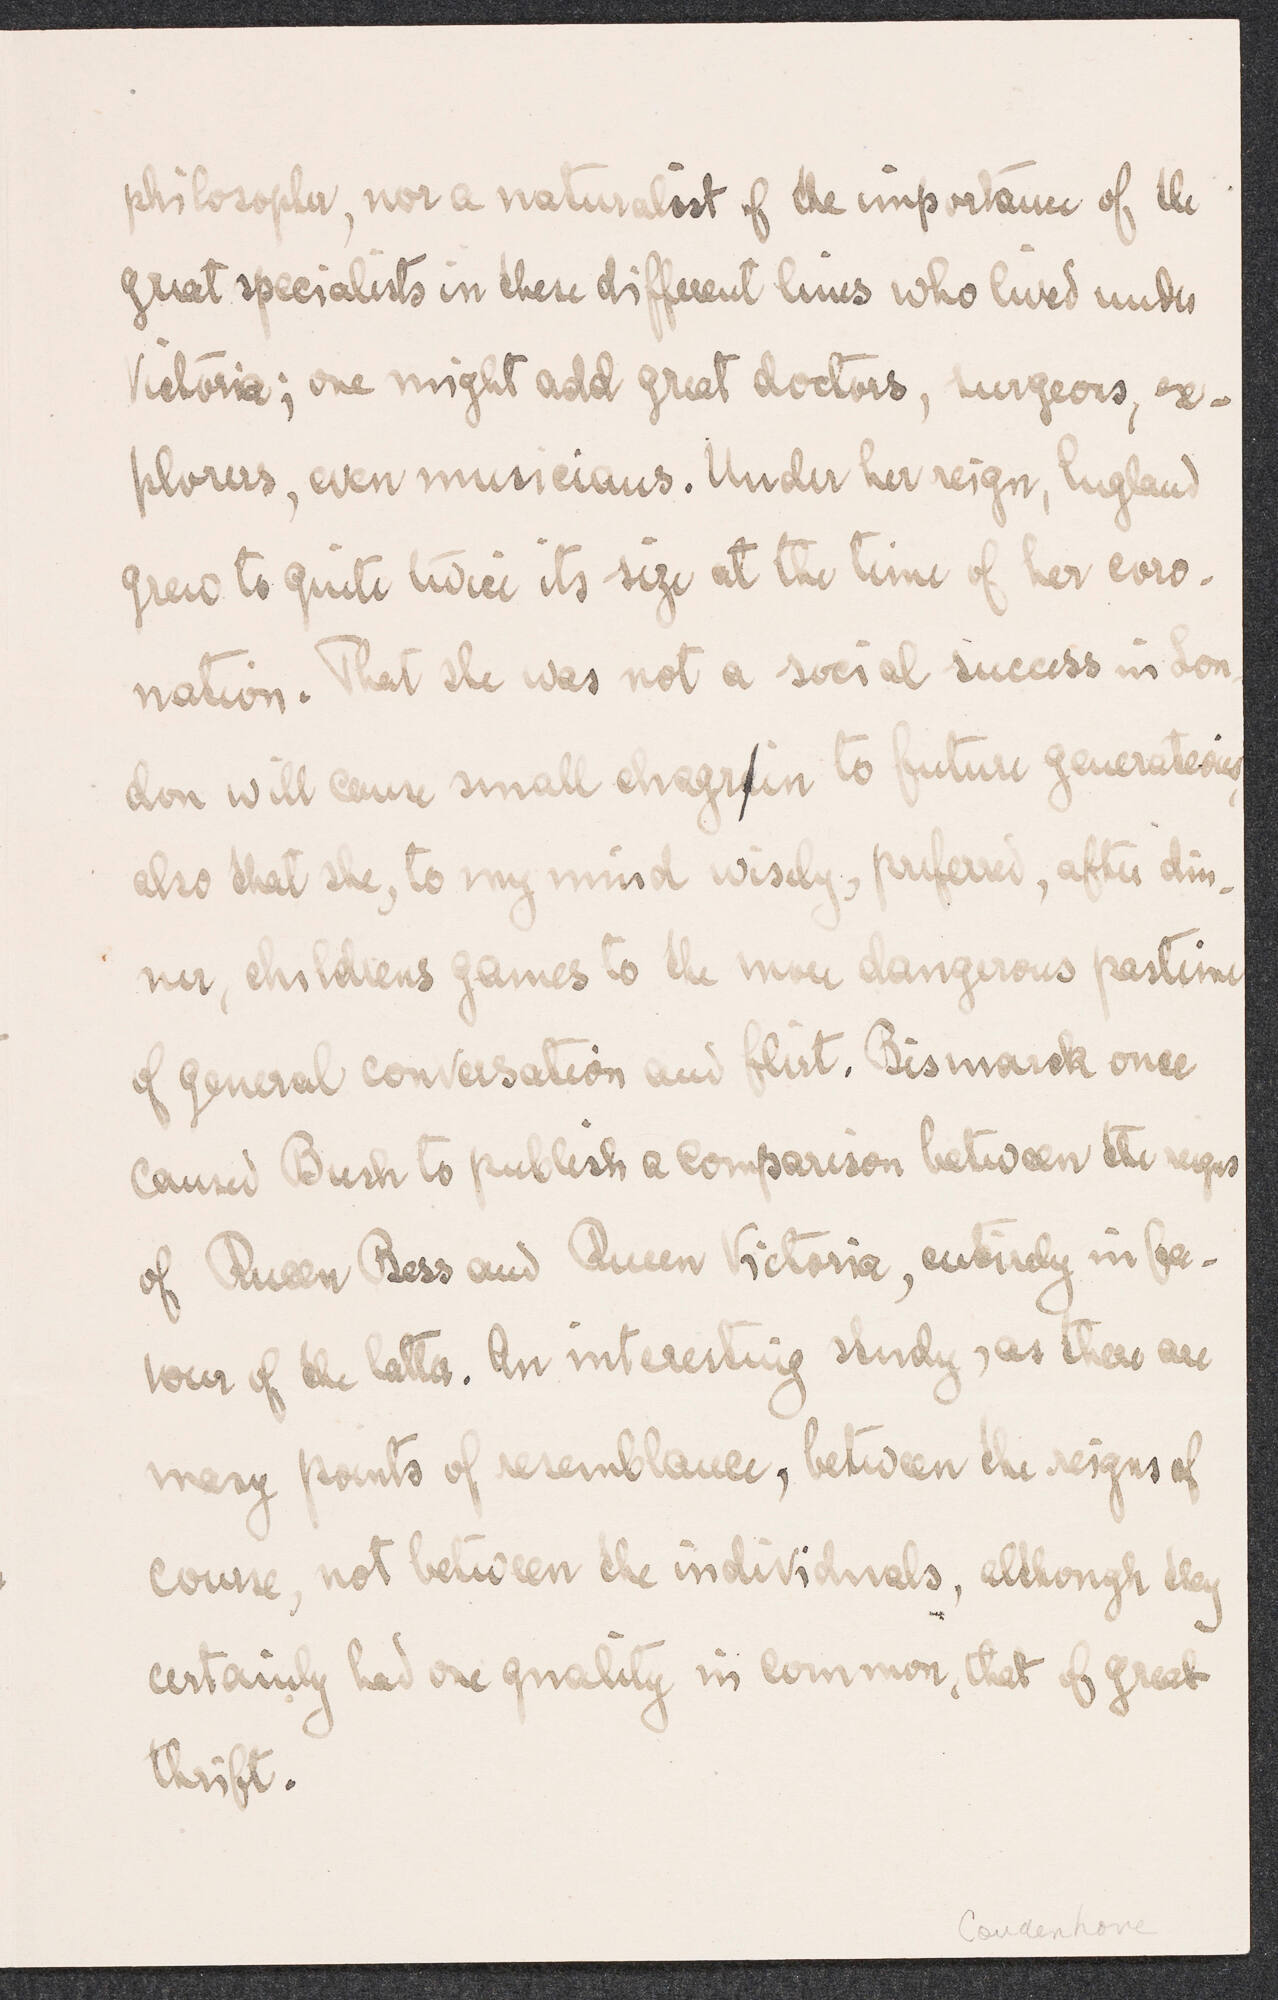 philosopher, nor a naturalist of the importance of the
great specialists in these different lines who lived under
Victoria; one might add great doctors, surgeons, ex-
plorers, even musicians. Under her reign, England
grew to quite twice its size at the time of her coro-
nation. That she was not a social success in Lon-
don will cause small chagrin to future generations,
also that she, to my mind wisely, preferred, after din-
ner, childrens games to the more dangerous pastime
of general conversation and flirt. Bismarck once
caused Bush to publish a comparison between the reigns
of Queen Bess and Queen Victoria, entirely in fa-
vour of the latter. An interesting study, as there are
many points of resemblance, between the reigns of
course, not between the individuals, although they
certainly had one quality in common, that of great
thrift.
Coudenhove